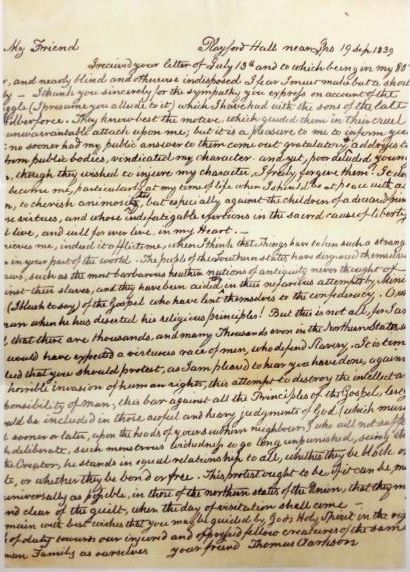 My Friend Playford Hall near Ips 19 Sep 1839
I received your letter of July 13th and to which being in my 80
r, and nearly blind and otherwise indisposed I fear I must make but a short
ly — I thank you sincerely for the sympathy you express on account of the
ggle (I presume you allude to it) which I have had with the sons of the late
Wilberforce. They know best the motive which guided them in their cruel
unwarrantable attack upon me; but it is a pleasure to me to inform you
t no sooner had my public answer to them come out gratulatory addresses to
from public bodies, vindicated my character. and yet, poor deluded young
, though they wished to injure my character, I freely forgive them! It do
become me, particularly at my time of life when I should be at peace with a
n, to cherish animosity, but especially against the children of a dear friend
se virtues, and whose indefatigable exertions in the sacred cause of liberty
d live, and will for ever live in my Heart. —
rieves me, indeed it afflicts me, when I think that things have taken such a strange
n in your part of the world. The people of the Southern states have disgraced themselves
aws, such as the most barbarous heathen nations of antiquity never thought of
inst their slaves, and they have been aided in this nefarious attempt by Mini
(I blush to say) of the Gospel who have lent themselves to the confederacy.
man when he has deserted his religious principles! But this is not all, for I am
d that there are thousands, and many Thousands even in the Northern States, w
would have expected a virtuous race of men, who defend Slavery. It is time
eed that you should protest, as I am pleased to hear you have done, against
horrible invasion of human rights, this attempt to destroy the intellect a
ponsibility of man, this bar against all the Principles of the Gospel, lest y
uld be included in those awful and heavy judgments of God (which must
l sooner or later, upon the heads of your southern neighbours) who will not suff
h deliberate, such monstrous wickedness to go long unpunished, seeing that
the Creator, he stands in equal relationship to all, whether they be black or
te, or whether they be bond or free. This protest ought to be, if it can be, ma
universally as possible, in those of the northern states of the Union, that they m
nd clear of the guilt, when the day of visitation shall come —
main with best wishes that you may be guided by Gods Holy Spirit in the rig
of duty towards our injured and oppressed fellow creatures of the same
man Family as ourselves your friend Thomas Clarkson